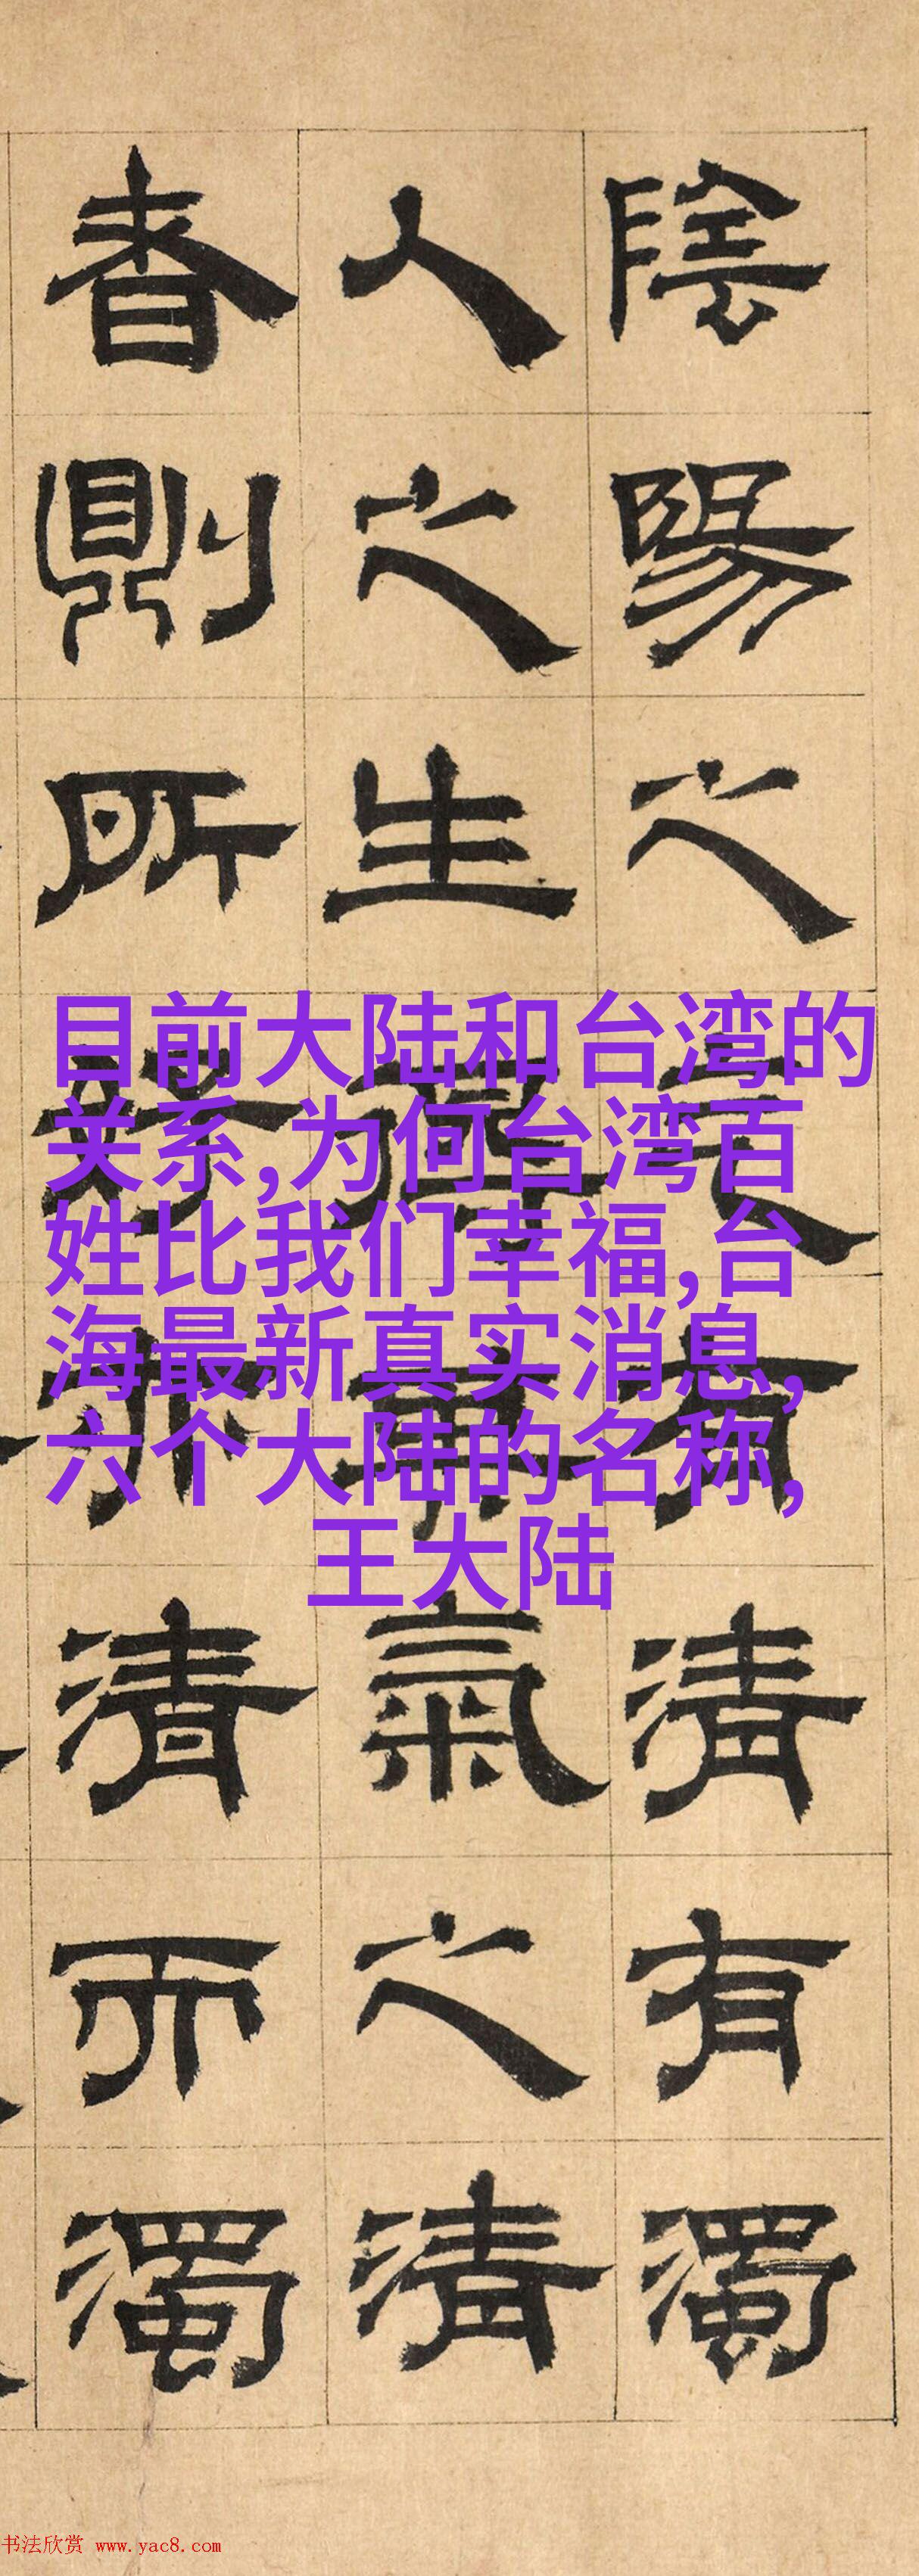 陰陽之氣有清有濁
人之生其氣之清
者則所好亦清而濁
目前大陆和台湾的
关系,为何台湾百
姓比我们幸福,台
海最新真实消息,
六个大陆的名称,
王大陆
书法欣赏 www.yac8.com